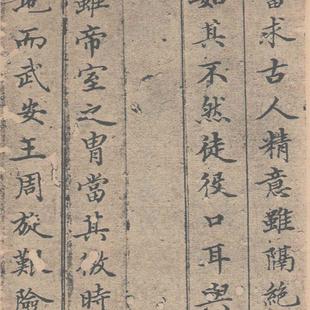 求古人精意雖隔絶
如其不然徒役口耳與
雖帝室之胄當其微時
地而武安王周旋艱險